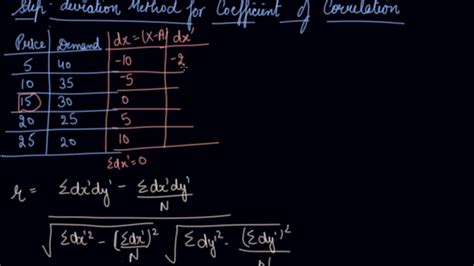 Step: deviation Method for Coefficient of Correlation
Price Demand dx=(X-A) dx'
5 40 -10 -2
10 35 -5
15 30 0
20 25 5
25 20 10
Σdx'=0
r = Σdx'dy' - Σdx'dy'/N
√Σdx'² - (Σdx')²/N √Σdy'² - (Σdy')²/N